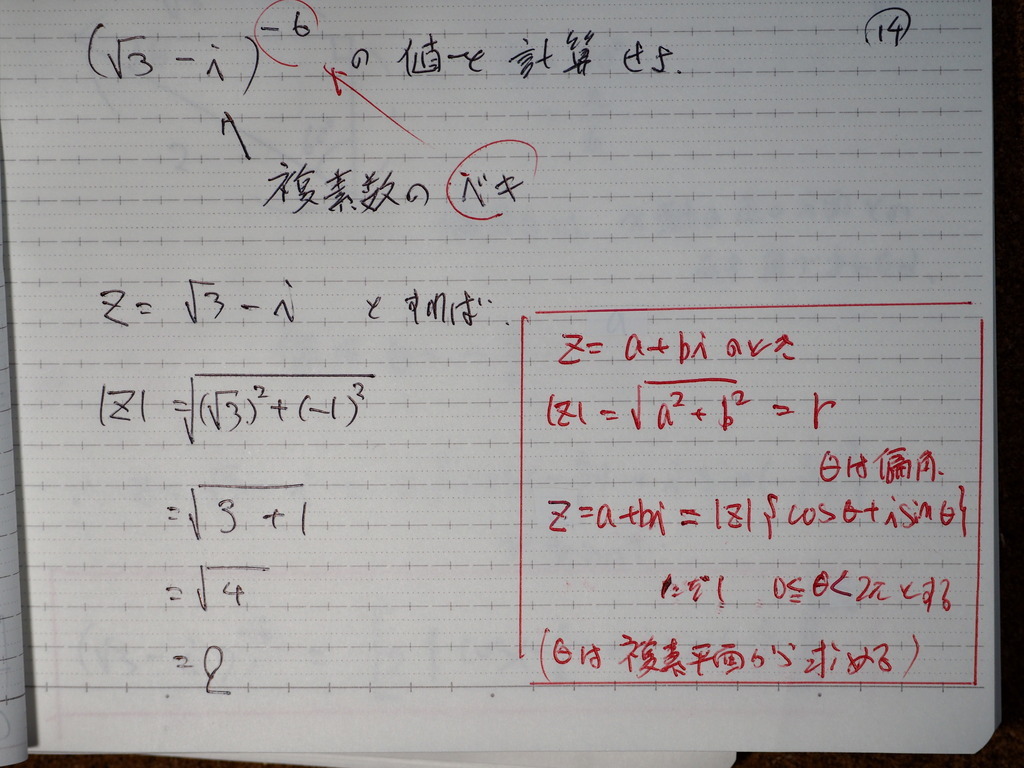 (√3 - i)^-6 の値を計算せよ. ⑭
複素数のベキ
Z = √3 - i とすれば.
|Z| = √(√3)² + (-1)²
= √3 + 1
= √4
= 2
Z = a + bi のとき
|Z| = √a² + b² = r
θは偏角.
Z = a + bi = |Z| { cosθ + i sinθ }
ただし 0 ≦ θ < 2π とする
(θは複素平面から求める)